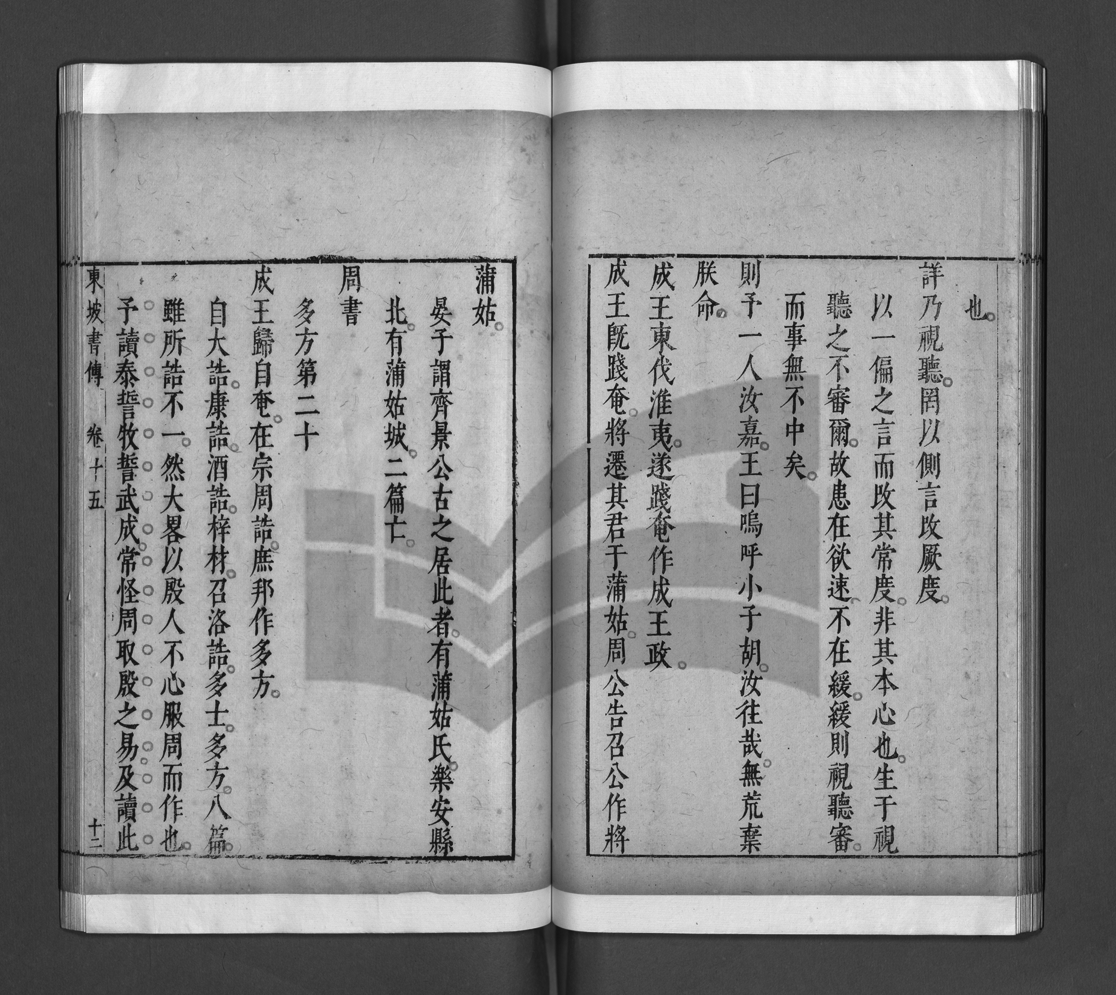 也。
詳乃視聽。罔以側言改厥度。
以一偏之言而改其常度。非其本心也。生于視
聽之不審爾。故患在欲速。不在緩。緩則視聽審。
而事無不中矣。
則予一人汝嘉。王曰嗚呼小子胡。汝往哉。無荒棄
朕命。
成王東伐淮夷。遂踐奄。作成王政。
成王旣踐奄。將遷其君于蒲姑。周公告召公作將
蒲姑。
晏子謂齊景公古之居此者。有蒲姑氏。樂安縣
北。有蒲姑城。二篇亡。
周書
多方第二十
成王歸自奄。在宗周誥。庶邦作多方。
自大誥。康誥。酒誥。梓材。召洛誥。多士。多方。八篇。
雖所誥不一。然大畧以殷人不心服周而作也。
予讀泰誓牧誓武成常怪周取殷之易及讀此
東坡書傳 卷十五 十二